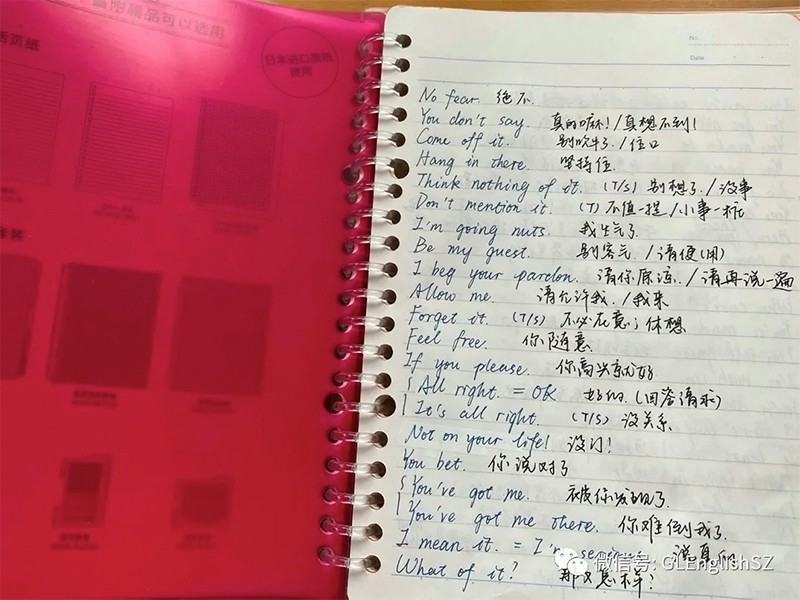 富附属品可以选用
活页纸
日本进口原纸
使用
No.
Date
No fear. 绝不.
You don't say. 真的嘛!/真想不到!
Come off it. 别吹牛了./住口
Hang in there. 坚持住
Think nothing of it. (T/S) 别想了./没事
Don't mention it. (T) 不值一提/小事一桩
I'm going nuts. 我生气了
Be my guest. 别客气./请便(用)
I beg your pardon. 请你原谅./请再说一遍
Allow me. 请允许我./我来
Forget it. (T/S) 不必在意; 休想
Feel free. 你随意
If you please. 你高兴就好
All right. = OK 好的.(回答请求)
It's all right. (T/S) 没关系
Not on your life! 没门!
You bet. 你说对了
You've got me. 被你发现了.
You've got me there. 你难倒我了.
I mean it. = I'm 说真的
What of it? 那又怎样?
微信号: GLEnglishSZ